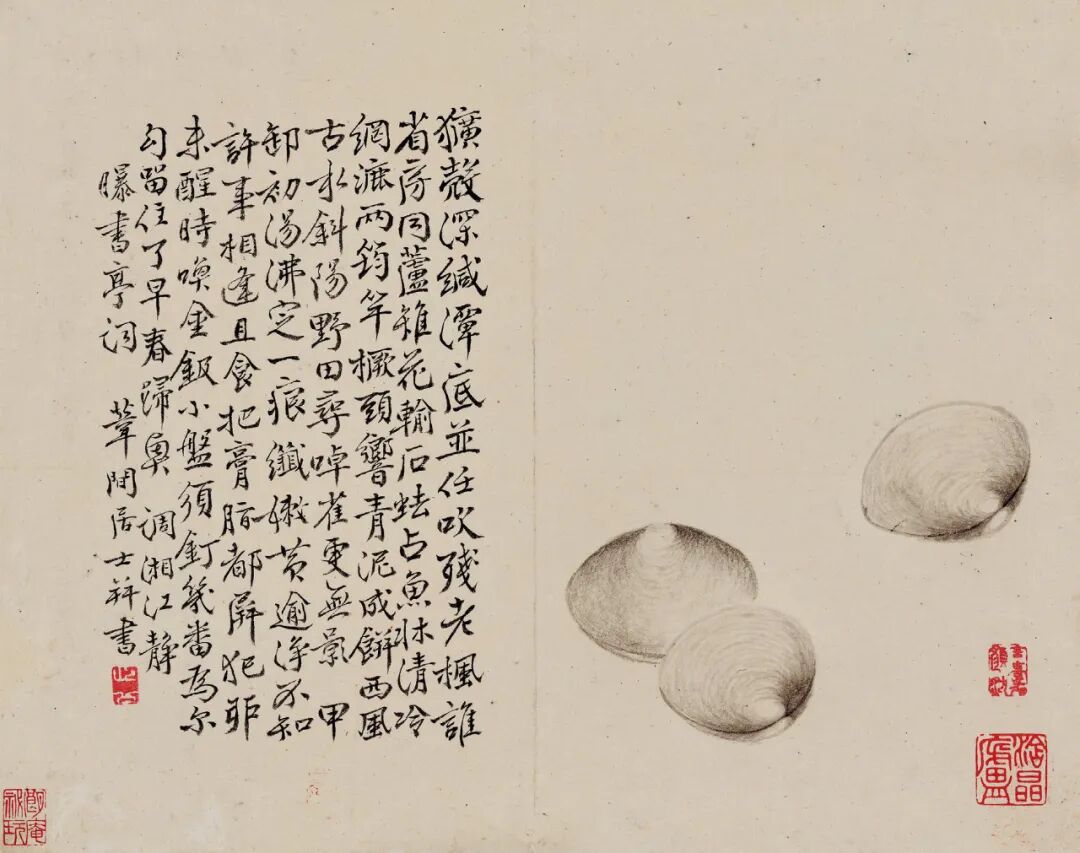 獷殼深緘潭底並任吹殘老楓誰
省房同蘆雉花輸石𧉧占魚牀清泠
網漉兩筠竿橛頭響青泥成餅西風
古水斜陽野田尋啅雀更無影 甲
卸初湯沸定一痕纖嫩黄逾淨不知
許事相逢且食把膏脂都屏犯卯
未醒時喚金釵小盤須飣幾番爲尔
勾留住了早春歸興 調湘江静
曝書亭詞 葦間居士祥書
即庵祕玩